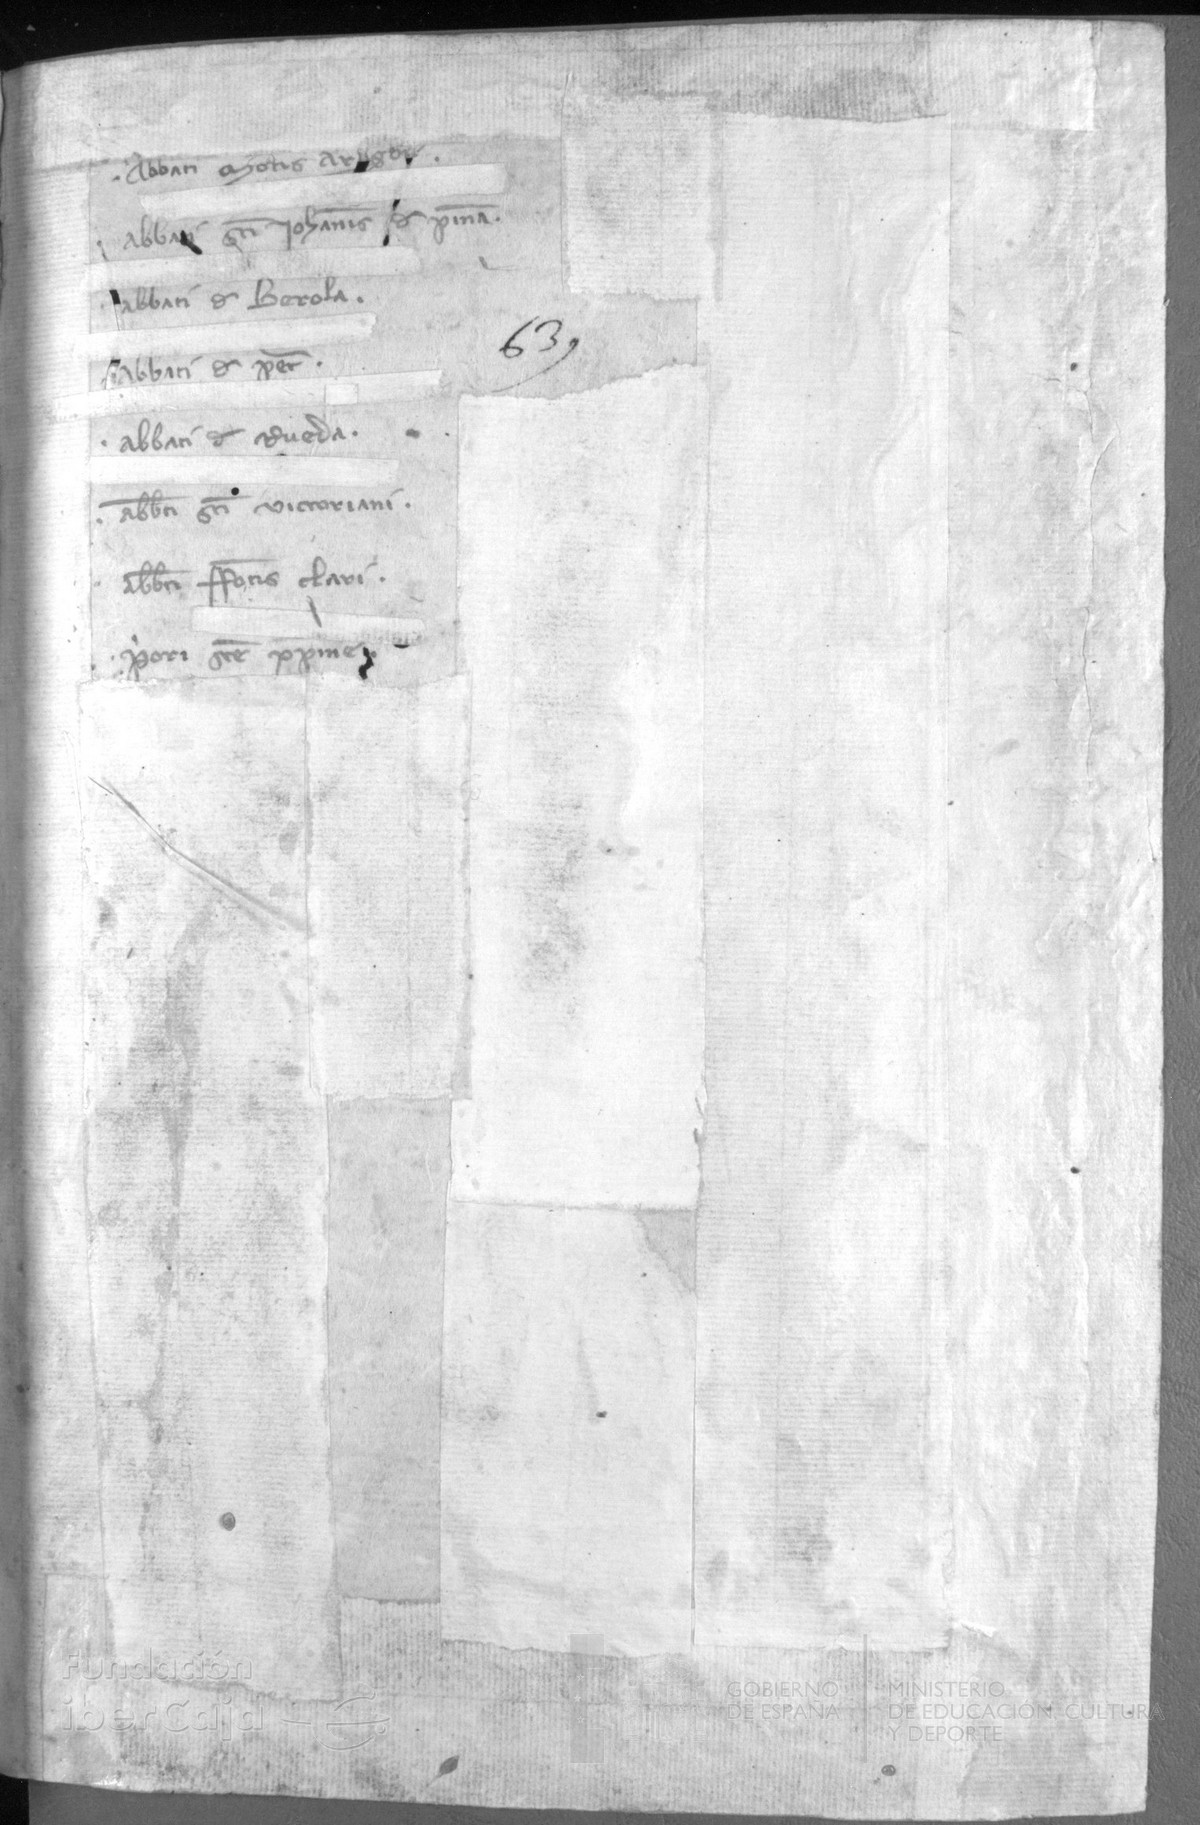 Abbati Montis Aragon.
abbati sci Johanis de pinna.
abbati de Berola.
63,
abbati de petr.
abbati de Rueda.
abbti sci victoriani.
abbti ffontis clari.
priori scte xpine.
Fundación
iberCaja
GOBIERNO DE ESPAÑA
MINISTERIO DE EDUCACIÓN, CULTURA Y DEPORTE